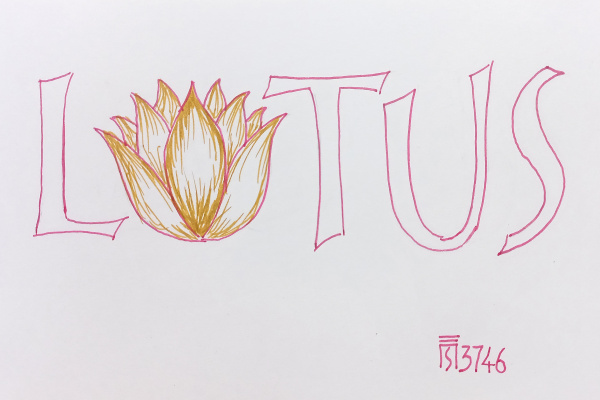 LOTUS
3746